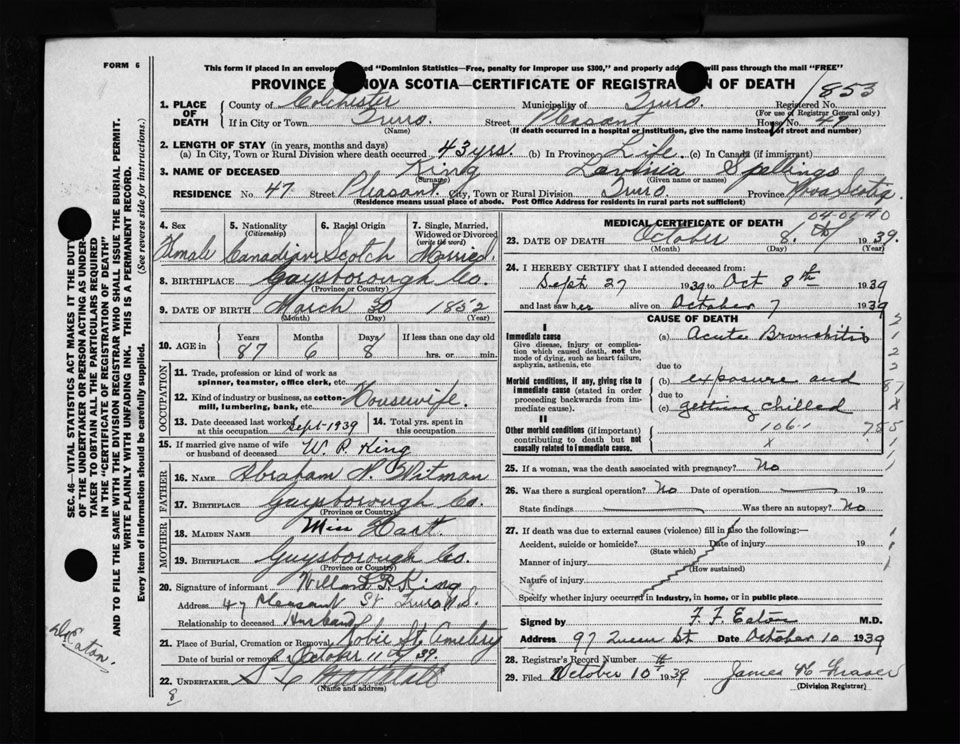 FORM 6
This form if placed in an envelope "Dominion Statistics—Free, penalty for improper use $300," and properly will pass through the mail "FREE"
PROVINCE NOVA SCOTIA—CERTIFICATE OF REGISTRATION OF DEATH
853
1. PLACE OF DEATH County of Colchester Municipality of Truro. Registered No.
(For use of Registrar General only)
If in City or Town Truro. Street Pleasant House No. 47
(Name) (If death occurred in a hospital or institution, give the name instead of street and number)
2. LENGTH OF STAY (in years, months and days)
(a) In City, Town or Rural Division where death occurred 43 yrs. (b) In Province Life. (c) In Canada (if immigrant)
3. NAME OF DECEASED King Lavinia Spellings
(Surname) (Given name or names)
RESIDENCE No. 47 Street Pleasant. City, Town or Rural Division Truro. Province Nova Scotia.
(Residence means usual place of abode. Post Office Address for residents in rural parts not sufficient)
4. Sex 5. Nationality (Citizenship) 6. Racial Origin 7. Single, Married, Widowed or Divorced (write the word)
Female Canadian Scotch Married.
8. BIRTHPLACE Guysborough Co.
(Province or Country)
9. DATE OF BIRTH March 30 1852
(Month) (Day) (Year)
10. AGE in Years Months Days If less than one day old
87 6 8 hrs. or min.
OCCUPATION
11. Trade, profession or kind of work as spinner, teamster, office clerk, etc.
12. Kind of industry or business, as cotton-mill, lumbering, bank, etc. Housewife.
13. Date deceased last worked at this occupation Sept-1939 14. Total yrs. spent in this occupation
15. If married give name of wife or husband of deceased W. P. King
FATHER
16. NAME Abraham N. Whitman
17. BIRTHPLACE Guysborough Co.
(Province or Country)
MOTHER
18. MAIDEN NAME Miss Hart.
19. BIRTHPLACE Guysborough Co.
(Province or Country)
20. Signature of informant Willard P. King
Address 47 Pleasant St Truro N.S.
Relationship to deceased Husband
21. Place of Burial, Cremation or Removal Robie St. Cemetery
Date of burial or removal October 11th 39.
22. UNDERTAKER
(Name and address)
8
MEDICAL CERTIFICATE OF DEATH
23. DATE OF DEATH October 8. 1939.
(Month) (Day)
24. I HEREBY CERTIFY that I attended deceased from:
Sept 27 1939 to Oct 8th 1939
and last saw her alive on October 7 1939
CAUSE OF DEATH
I
Immediate cause (a) Acute Bronchitis
Give disease, injury or complication which caused death, not the mode of dying, such as heart failure, asphyxia, asthenia, etc
due to
Morbid conditions, if any, giving rise to immediate cause (stated in order proceeding backwards from immediate cause). (b) exposure and
due to
(c) getting chilled
II
Other morbid conditions (if important) contributing to death but not causally related to immediate cause. 106-1
x
25. If a woman, was the death associated with pregnancy? No
26. Was there a surgical operation? No Date of operation 19
State findings Was there an autopsy? No
27. If death was due to external causes (violence) fill in also the following:—
Accident, suicide or homicide? Date of injury 19
(State which)
Manner of injury
(How sustained)
Nature of injury
Specify whether injury occurred in industry, in home, or in public place
Signed by F. F. Eaton M.D.
Address 97 Queen St Date October 10 1939
28. Registrar's Record Number
29. Filed October 10th 1939 James W Fraser
(Division Registrar)
SEC. 46—VITAL STATISTICS ACT MAKES IT THE DUTY
OF THE UNDERTAKER OR PERSON ACTING AS UNDER-
TAKER TO OBTAIN ALL THE PARTICULARS REQUIRED
IN THE "CERTIFICATE OF REGISTRATION OF DEATH"
AND TO FILE THE SAME WITH THE DIVISION REGISTRAR WHO SHALL ISSUE THE BURIAL PERMIT.
WRITE PLAINLY WITH UNFADING INK. THIS IS A PERMANENT RECORD.
Every item of information should be carefully supplied. (See reverse side for instructions.)
Eaton.